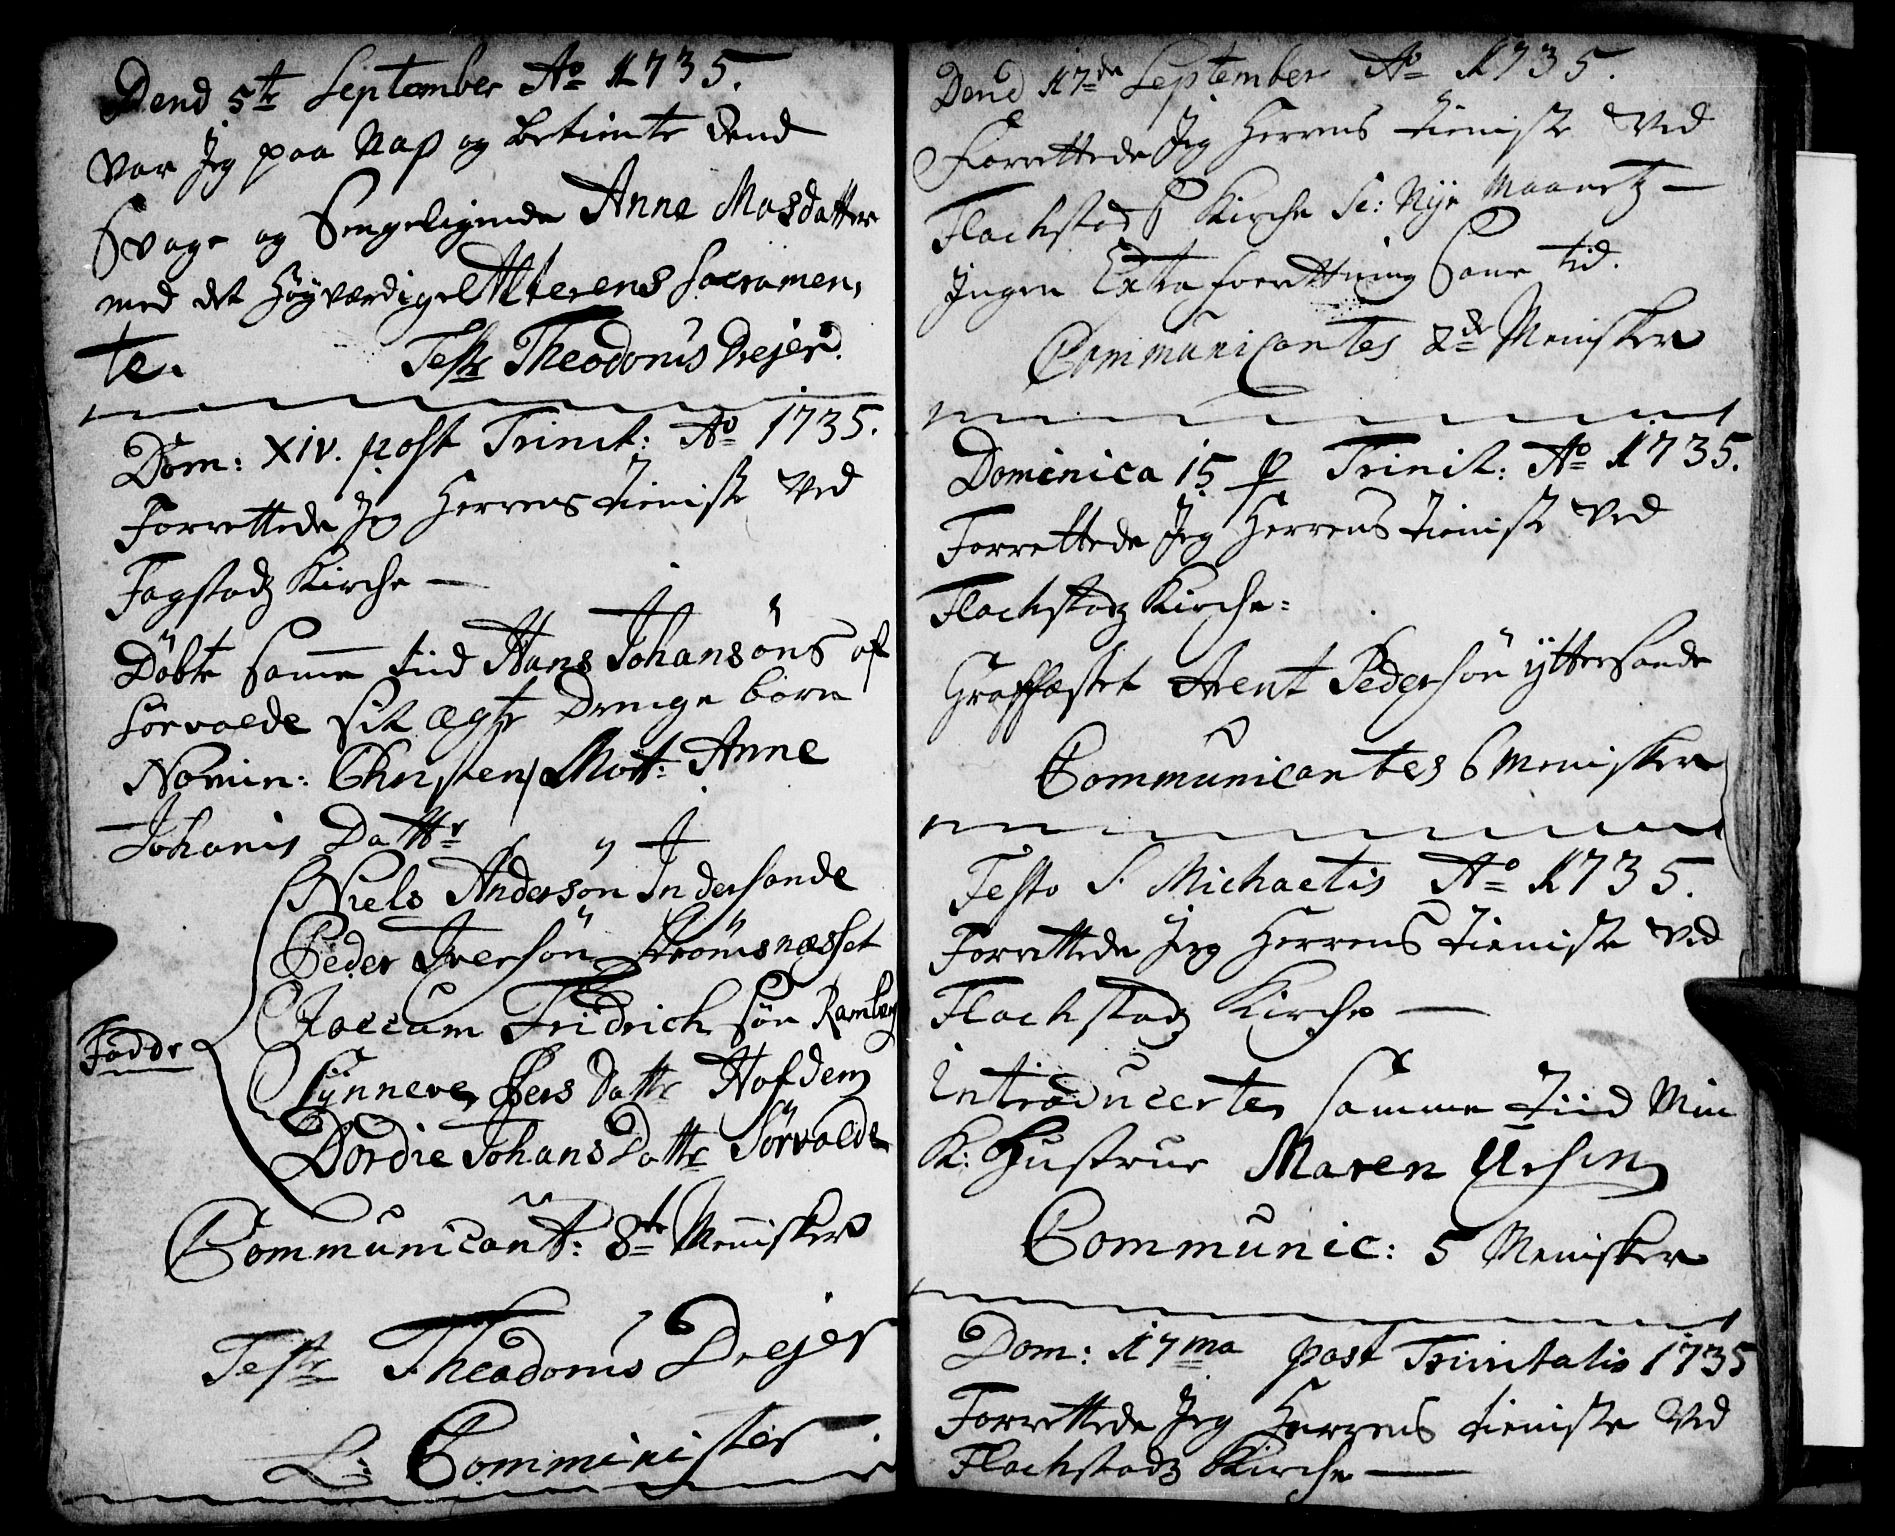 Dend 5te September Ao 1735.
Var Jeg paa Nap og betiente dend
Svage og Sengeligende Anne Masdatter
med det Høyværdige Alterens Sacramen,
te. Teste Theodorus Drejer.
Dom: XIV. post Trinit: Ao 1735.
Forrettede Jeg Herrens tieniste Ved
Fagstadz Kirche —
Döbte samme tiid Hans Johansöns af
Sörvaede sit ægte Drenge börn
Nomin: Christen, Mott: Anne
Johanis Dattr
Niels Andersön Indersande
Peder Iversön Strömsnæsset
Joccum Fridrich søn Ramberg
Faddr
Synneve Pers Dattr Hofden
Dordie Johans Dattr Sörvaede
Communicant: 8te Menisker
Teste Theodorus Drejer
L: Comminister.
Dend 17de September Ao 1735.
Forrettede Jeg Herrens tieniste Ved
Flachstads Kirche Sc: Nye Maanetz —
Ingen Extra forrettning Same tid.
Communicantes 2de Menisker
Dominica 15 p Trinit: Ao 1735.
Forrettede Jeg Herrens tieniste Ved
Flachstadz Kirche
Graffæstet Arent Pedersön yttersande
Communicantes 6 Menisker
Festo S. Michaelis Ao 1735.
Forrettede Jeg Herrens tieniste Ved
Flachstadz Kirche —
Introducertes samme Tiid Min
K: Hustrue Maren Ursin
Communic: 5 Menisker
Dom: 17ma post Trinitatis 1735
Forrettede Jeg Herrens tieniste Ved
Flachstadz Kirche —